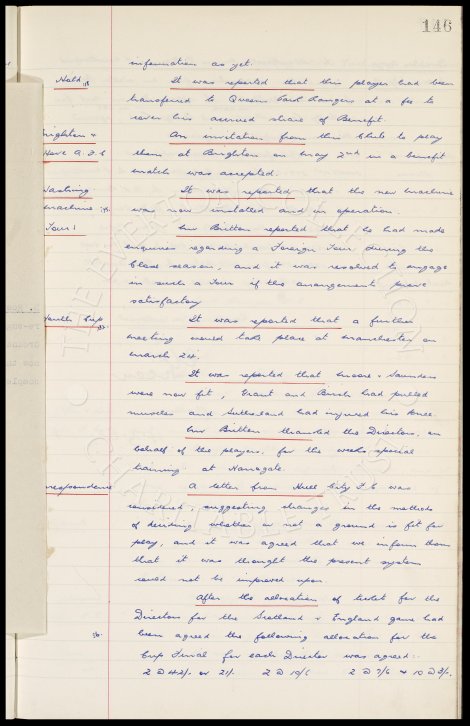 146
information as yet.
Hold. It was reported that this player had been
transferred to Queens Park Rangers at a fee to
cover his accrued share of Benefit.
Brighton + An invitation from this Club to play
Hove A.F.C them at Brighton on May 2nd in a benefit
match was accepted.
Washing It was reported that the new machine
machine was now installed and in operation.
Tour: Mr Britton reported that he had made
enquiries regarding a Foreign Tour during the
Close season, and it was resolved to engage
in such a Tour if the arrangements prove
satisfactory
Youth Cup It was reported that a further
meeting would take place at Manchester on
March 24.
It was reported that Moore + Saunders
were now fit, Grant and Birch had pulled
muscles and Sutherland had injured his knee.
Mr Britton thanked the Directors, on
behalf of the players, for the weeks special
training at Harrogate.
Correspondence A letter from Hull City F.C was
considered, suggesting changes in the methods
of deciding whether or not a ground is fit for
play, and it was agreed that we inform them
that it was thought the present system
could not be improved upon.
After the allocation of tickets for the
Directors for the Scotland v England game had
been agreed the following allocation for the
Cup Final for each Director was agreed:-
2 @ 42/- or 21/- 2 @ 10/6 2 @ 7/6 + 10 @ 3/-
THE EVERTON COLLECTION
CHARITABLE TRUST